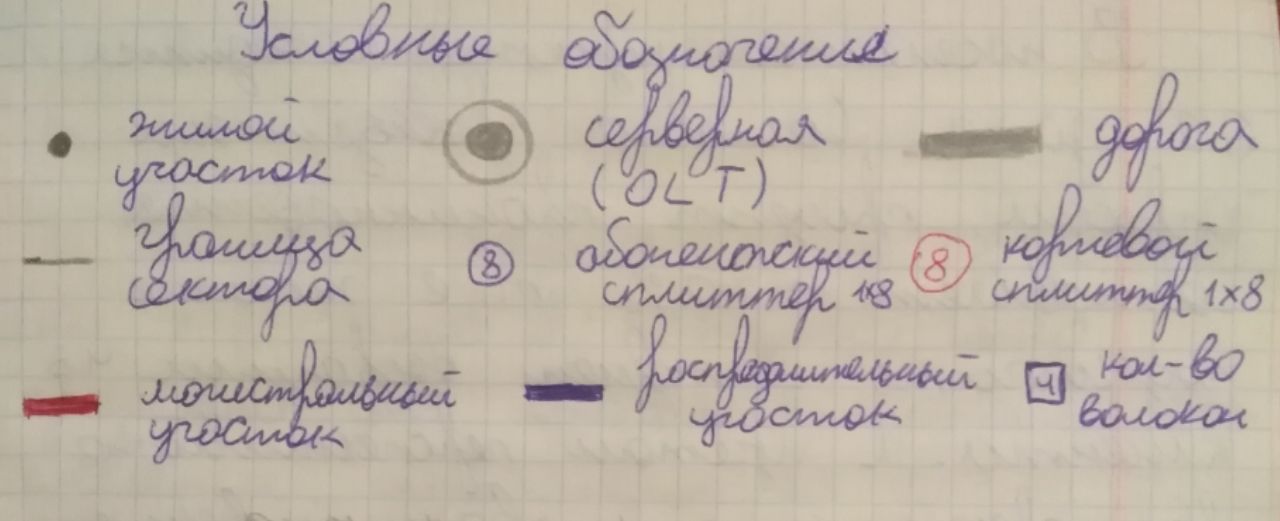 Условные обозначения
жилой
участок
серверная
(OLT)
дорога
граница
сектора
8
абонентский
сплиттер 1x8
8
корневой
сплиттер 1x8
магистральный
участок
распределительный
участок
4
кол-во
волокон